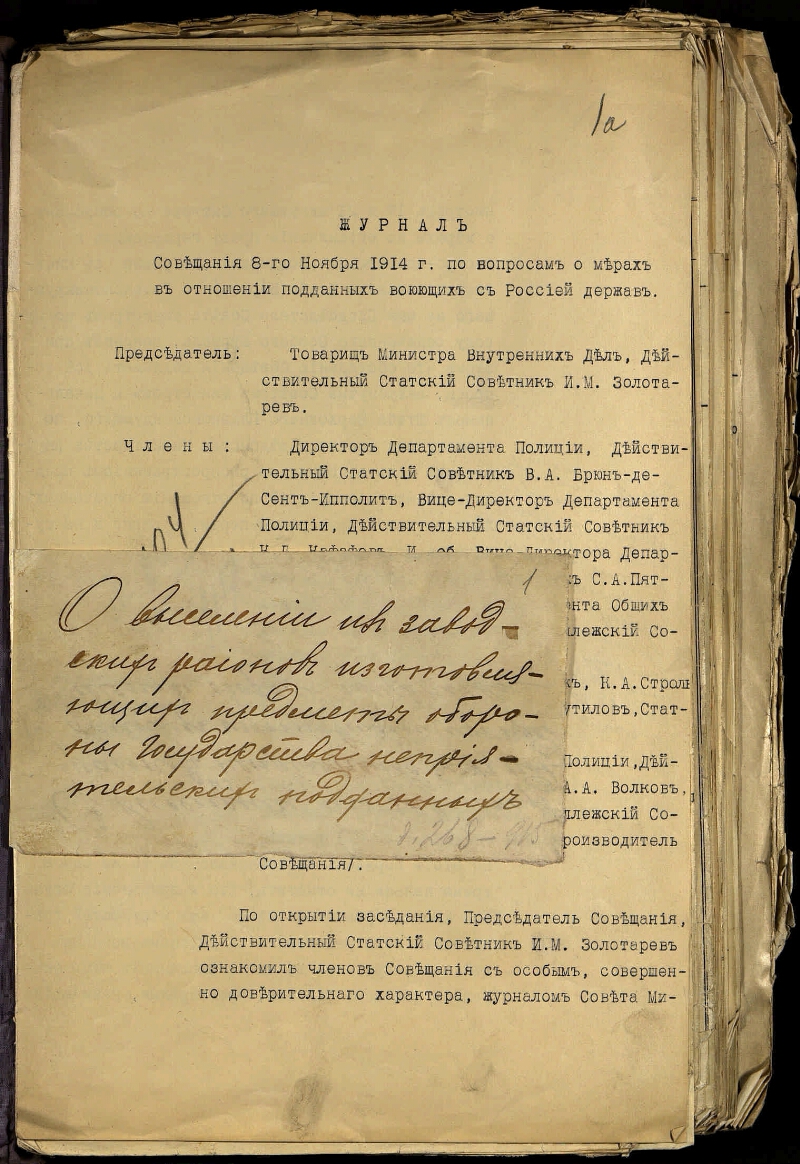 1а
ЖУРНАЛЪ
Совѣщанія 8-го Ноября 1914 г. по вопросамъ о мѣрахъ
въ отношеніи подданныхъ воюющихъ съ Россіей державъ.
Предсѣдатель: Товарищъ Министра Внутреннихъ Дѣлъ, Дѣй-
ствительный Статскій Совѣтникъ И.М. Золота-
ревъ.
Члены: Директоръ Департамента Полиціи, Дѣйстви-
тельный Статскій Совѣтникъ В.А. Брюнъ-де-
Сентъ-Ипполитъ, Вице-Директоръ Департамента
Полиціи, Дѣйствительный Статскій Совѣтникъ
И. об. Вице-Директора Депар-
ъ С.А.Пят-
нта Общихъ
лежскій Со-
къ, К.А.Строль
утиловъ,Стат-
Полиціи,Дѣй-
А.А. Волковъ,
ллежскій Со-
роизводитель
Совѣщанія/.
1
О выселеніи изъ завод-
скихъ раіоновъ изготовля-
ющихъ предметы оборо-
ны Государства непрія-
тельскихъ подданныхъ
По открытіи засѣданія, Предсѣдатель Совѣщанія,
Дѣйствительный Статскій Совѣтникъ И.М. Золотаревъ
ознакомилъ членовъ Совѣщанія съ особымъ, совершен-
но довѣрительнаго характера, журналомъ Совѣта Ми-